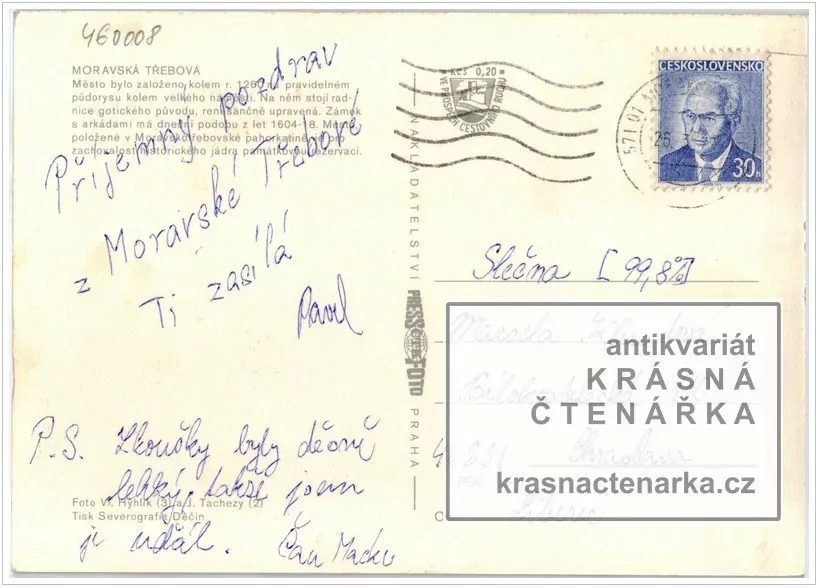 460008
MORAVSKÁ TŘEBOVÁ
Město bylo založeno kolem r. 126 na pravidelném
půdorysu kolem velkého náměstí. Na něm stojí rad-
nice gotického původu, renesančně upravená. Zámek
s arkádami má dnešní podobu z let 1604-18. Město
položené v Moravskotřebovské pahorkatině je pro
zachovalost historického jádra památkovou rezervací.
Příjemný pozdrav
z Moravské Třebové
Ti zasílá
Pavel
P.S. Zkoušky byly děsně
lehký, takže jsem
ji udál. Čau
Foto Vl. Hyhlík (3) a J. Tachezy (2)
Tisk Severografia Děčín
NAKLADATELSTVÍ PRESSFOTO PRAHA
KČS 0,20
VE PROSPĚCH CESTOVNÍHO RUCHU
571 01
ČESKOSLOVENSKO
30h
Slečna [99,8%]
Marcela
antikvariát
KRÁSNÁ
ČTENÁŘKA
krasnactenarka.cz
Chrastava
Liberec